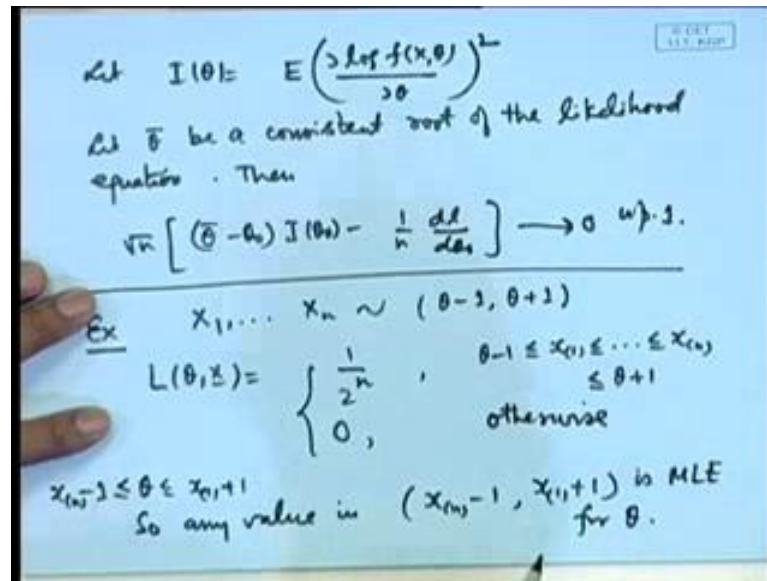 Let I(θ) = E(∂ log f(x,θ) / ∂θ)²
Let θ̄ be a consistent root of the likelihood
equation. Then
√n [ (θ̄ - θ₀) I(θ₀) - 1/n dl/dθ₀ ] → 0 w.p.1.
Ex X₁, ... Xₙ ~ (θ-1, θ+1)
L(θ, x) = { 1/2ⁿ , θ-1 ≤ x₍₁₎ ≤ ... ≤ x₍ₙ₎
≤ θ+1
0, otherwise
x₍ₙ₎-1 ≤ θ ≤ x₍₁₎+1
So any value in (x₍ₙ₎-1, x₍₁₎+1) is MLE
for θ.